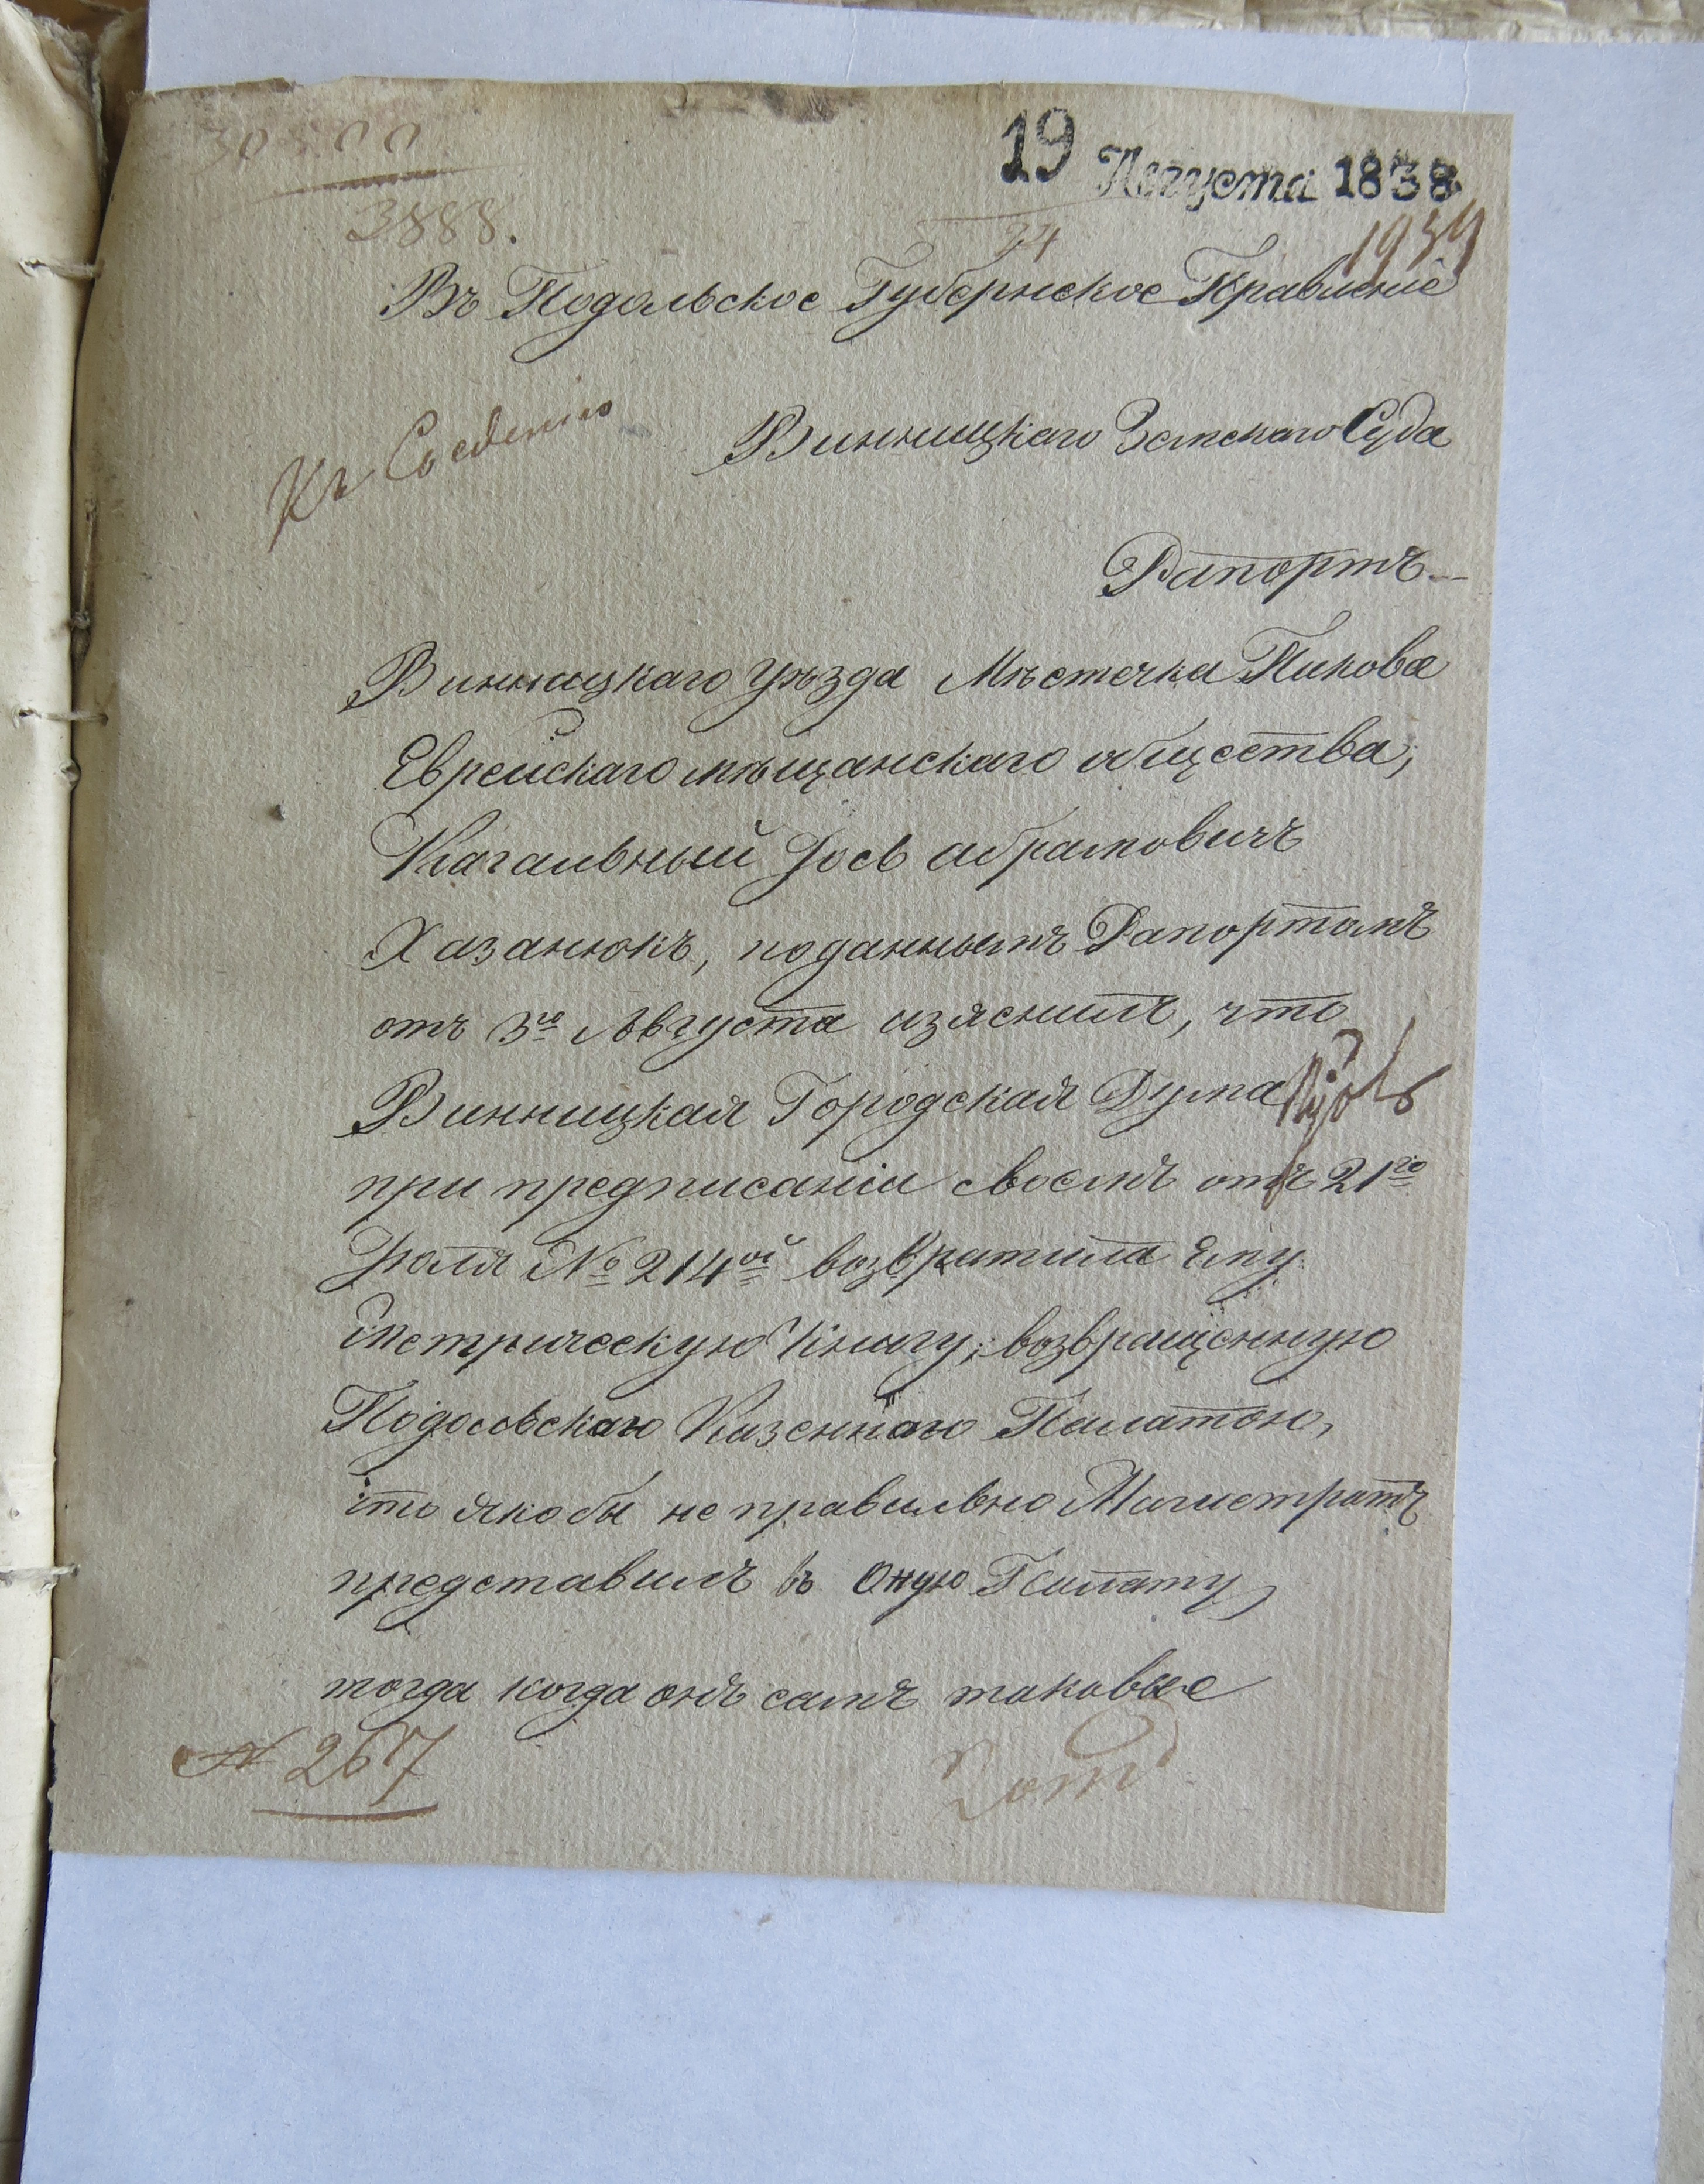 30500
3888.
19 Августа 1838
1939
24
Въ Подольское Губернское Правление
Къ Соединению
Винницкаго Земскаго Суда
Рапортъ
Винницкаго уѣзда Мѣстечка Пикова
Еврейскаго мѣщанскаго общества,
Кагальный Іось абрамовичъ
Хазанюкъ, поданнымъ Рапортомъ
отъ 3го Августа изяснилъ, что
Винницкая Городская Дума
при предписаніи своемъ отъ 21го
Іюля № 214ой возвратила Ему
Метрическую Книгу, возвращенную
Подольскаю Казеннаю Палатою,
что якобы не правильно Магистратъ
представилъ въ Оную Палату,
тогда когда онъ самъ таковые
№ 267